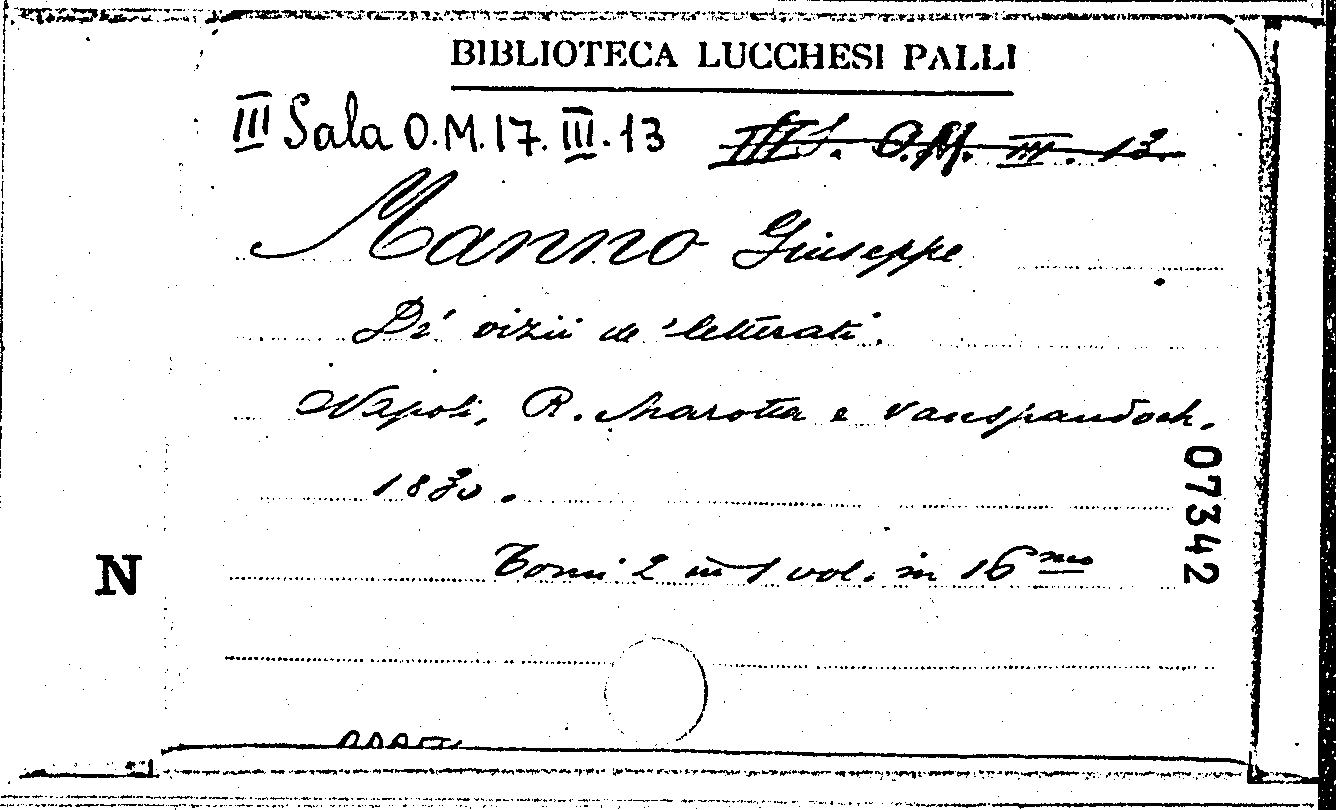 BIBLIOTECA LUCCHESI PALLI
III Sala O.M.17.III.13 III S. O.M. III. 13.
Manno Giuseppe
De' vizii de' letterati.
Napoli, R. Marotta e Vanspandoch,
1830.
Tomi 2 in 1 vol. in 16mo
07342
N